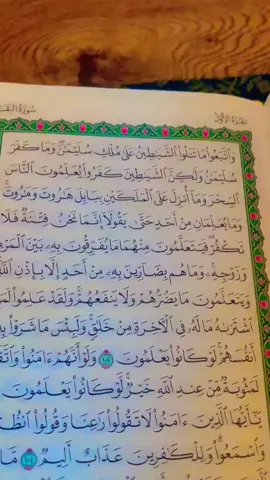 الجزء الأول
سورة البقـ
وَٱتَّبَعُوا۟ مَا تَتْلُوا۟ ٱلشَّيَٰطِينُ عَلَىٰ مُلْكِ سُلَيْمَٰنَ ۖ وَمَا كَفَرَ
سُلَيْمَٰنُ وَلَٰكِنَّ ٱلشَّيَٰطِينَ كَفَرُوا۟ يُعَلِّمُونَ ٱلنَّاسَ
ٱلسِّحْرَ وَمَآ أُنزِلَ عَلَى ٱلْمَلَكَيْنِ بِبَابِلَ هَٰرُوتَ وَمَٰرُوتَ ۚ
وَمَا يُعَلِّمَانِ مِنْ أَحَدٍ حَتَّىٰ يَقُولَآ إِنَّمَا نَحْنُ فِتْنَةٌ فَلَا
تَكْفُرْ ۖ فَيَتَعَلَّمُونَ مِنْهُمَا مَا يُفَرِّقُونَ بِهِۦ بَيْنَ ٱلْمَرْءِ
وَزَوْجِهِۦ ۚ وَمَا هُم بِضَآرِّينَ بِهِۦ مِنْ أَحَدٍ إِلَّا بِإِذْنِ ٱللَّهِ
وَيَتَعَلَّمُونَ مَا يَضُرُّهُمْ وَلَا يَنفَعُهُمْ ۚ وَلَقَدْ عَلِمُوا۟ لَمَنِ
ٱشْتَرَىٰهُ مَا لَهُۥ فِى ٱلْءَاخِرَةِ مِنْ خَلَٰقٍ ۚ وَلَبِئْسَ مَا شَرَوْا۟ بِهِۦٓ
أَنفُسَهُمْ ۚ لَوْ كَانُوا۟ يَعْلَمُونَ ١٠٢ وَلَوْ أَنَّهُمْ ءَامَنُوا۟ وَٱتَّقَوْا۟
لَمَثُوبَةٌ مِّنْ عِندِ ٱللَّهِ خَيْرٌ ۖ لَّوْ كَانُوا۟ يَعْلَمُونَ
يَٰٓأَيُّهَا ٱلَّذِينَ ءَامَنُوا۟ لَا تَقُولُوا۟ رَٰعِنَا وَقُولُوا۟ ٱنظُرْنَا
وَٱسْمَعُوا۟ ۗ وَلِلْكَٰفِرِينَ عَذَابٌ أَلِيمٌ ١٠٤ مَّا